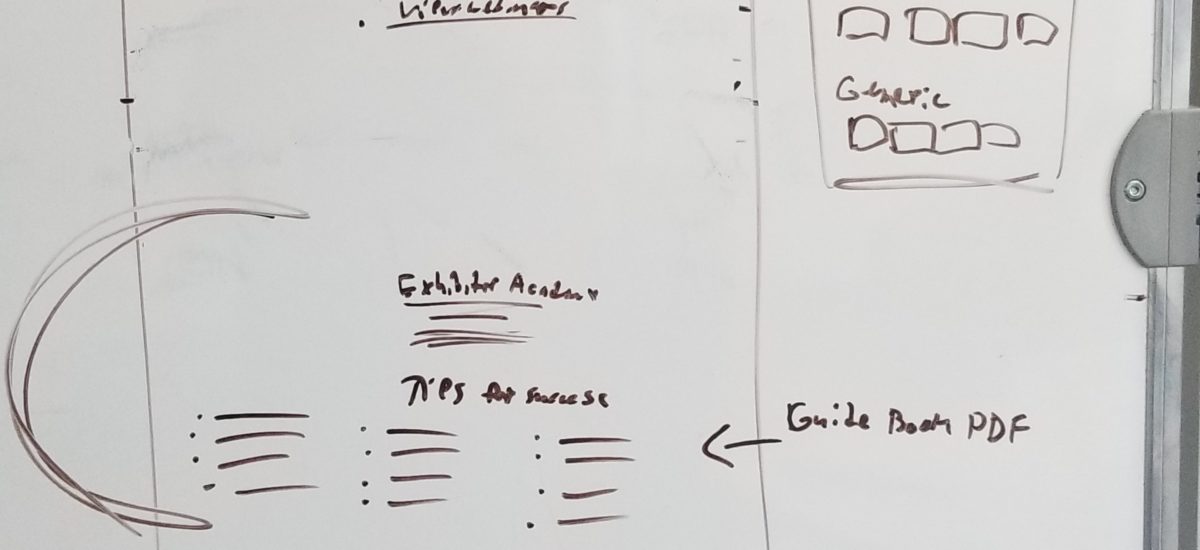 Generic
Exhibitor Academy
Tips for success
Guide Book PDF